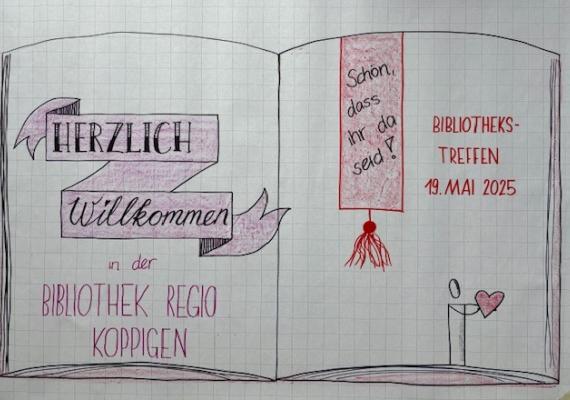 HERZLICH
Willkommen
in der
BIBLIOTHEK REGIO
KOPPIGEN
Schön,
dass
ihr da
seid!
BIBLIOTHEKS-
TREFFEN
19. MAI 2025